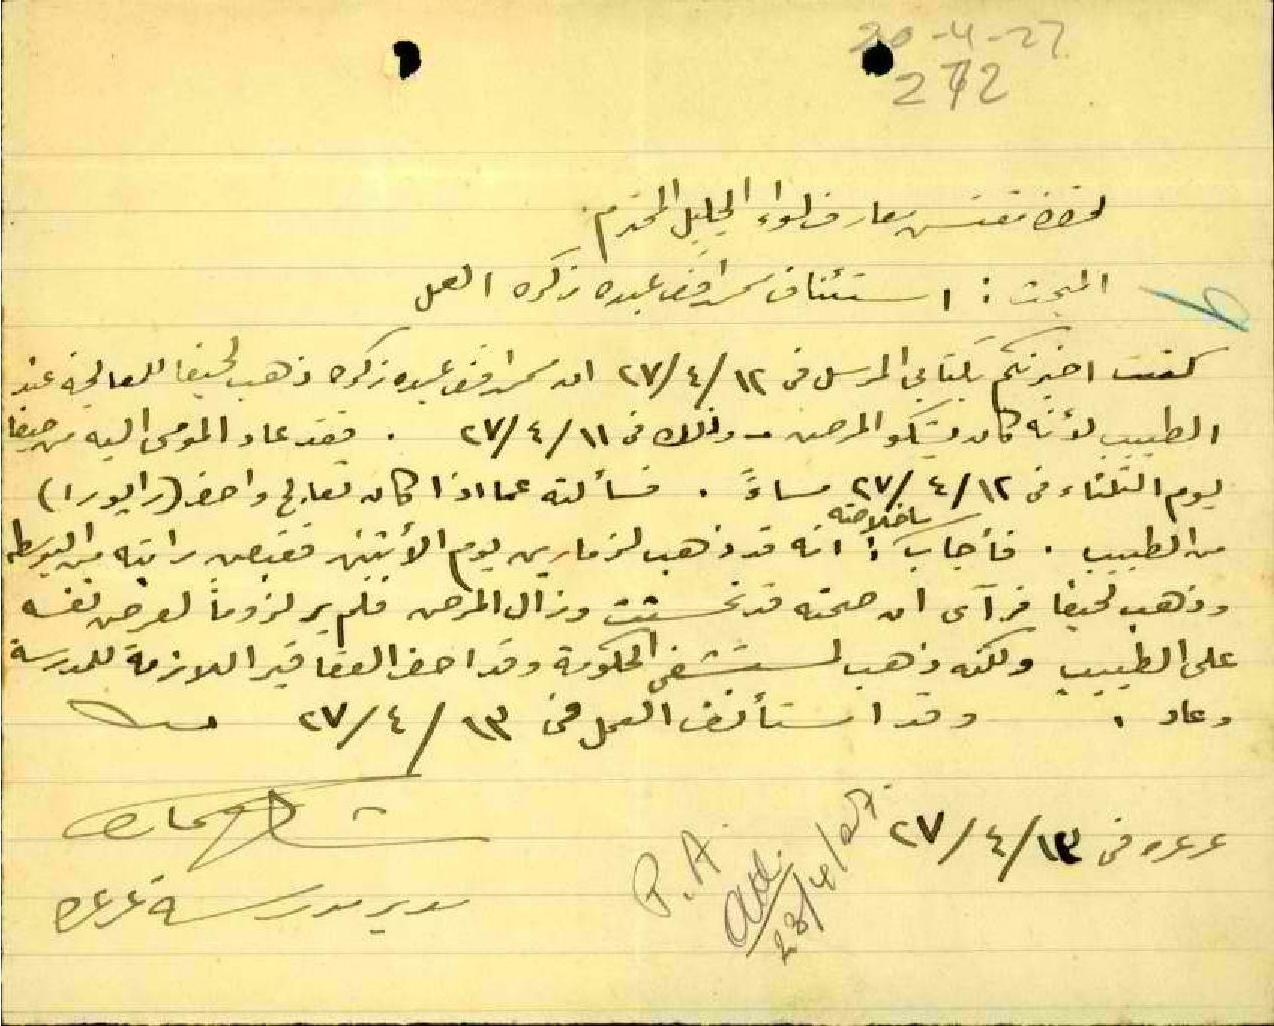 20-4-27
272
لحضرة مفتش معارف لواء الجليل المحترم.
المبحث : استئناف محمد افندي عبده زكره العمل
كنت اخبرتكم بكتابي المرسل في ١٢/٤/٢٧ ان محمد افندي عبده زكره ذهب لحيفا للمعالجة عند
الطبيب لأنه كان يشكو المرض - وذلك في ١١/٤/٢٧ . فقد عاد المومى اليه من حيفا
يوم الثلثاء في ١٢/٤/٢٧ مساءً . فسألته عما اذا كان تعالج واحضر (رابورا)
من الطبيب . فأجاب ما خلاصته : انه قد ذهب لزمارين يوم الأثنين فقبض راتبه من البوسطه
وذهب لحيفا فرآى ان صحته قد تحسنت وزال المرض فلم ير لزوماً لعرض نفسه
على الطبيب ولكنه ذهب لمستشفى الحكومة وقد احضر العقاقير اللازمة للمدرسة
وعاد . وقد استأنف العمل في ١٣/٤/٢٧
عرعره في ١٣/٤/٢٧
P.A.
23/4/27
مدير مدرسة عرعره